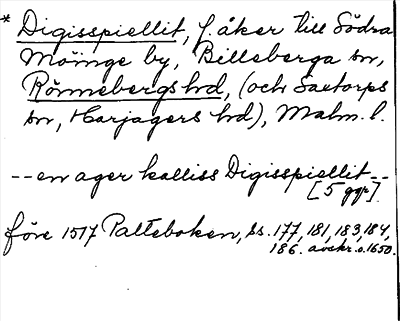 * Digisspiellit, f. åker till Södra
Möinge by, Billeberga sn,
Rönnebergs hd, (och Saxtorps
sn, Harjagers hd), Malm. l.
-- en ager kalliss Digisspiellit --
[5 ggr].
före 1517 Palteboken, ss. 177, 181, 183, 184,
186. avskr. o. 1650.